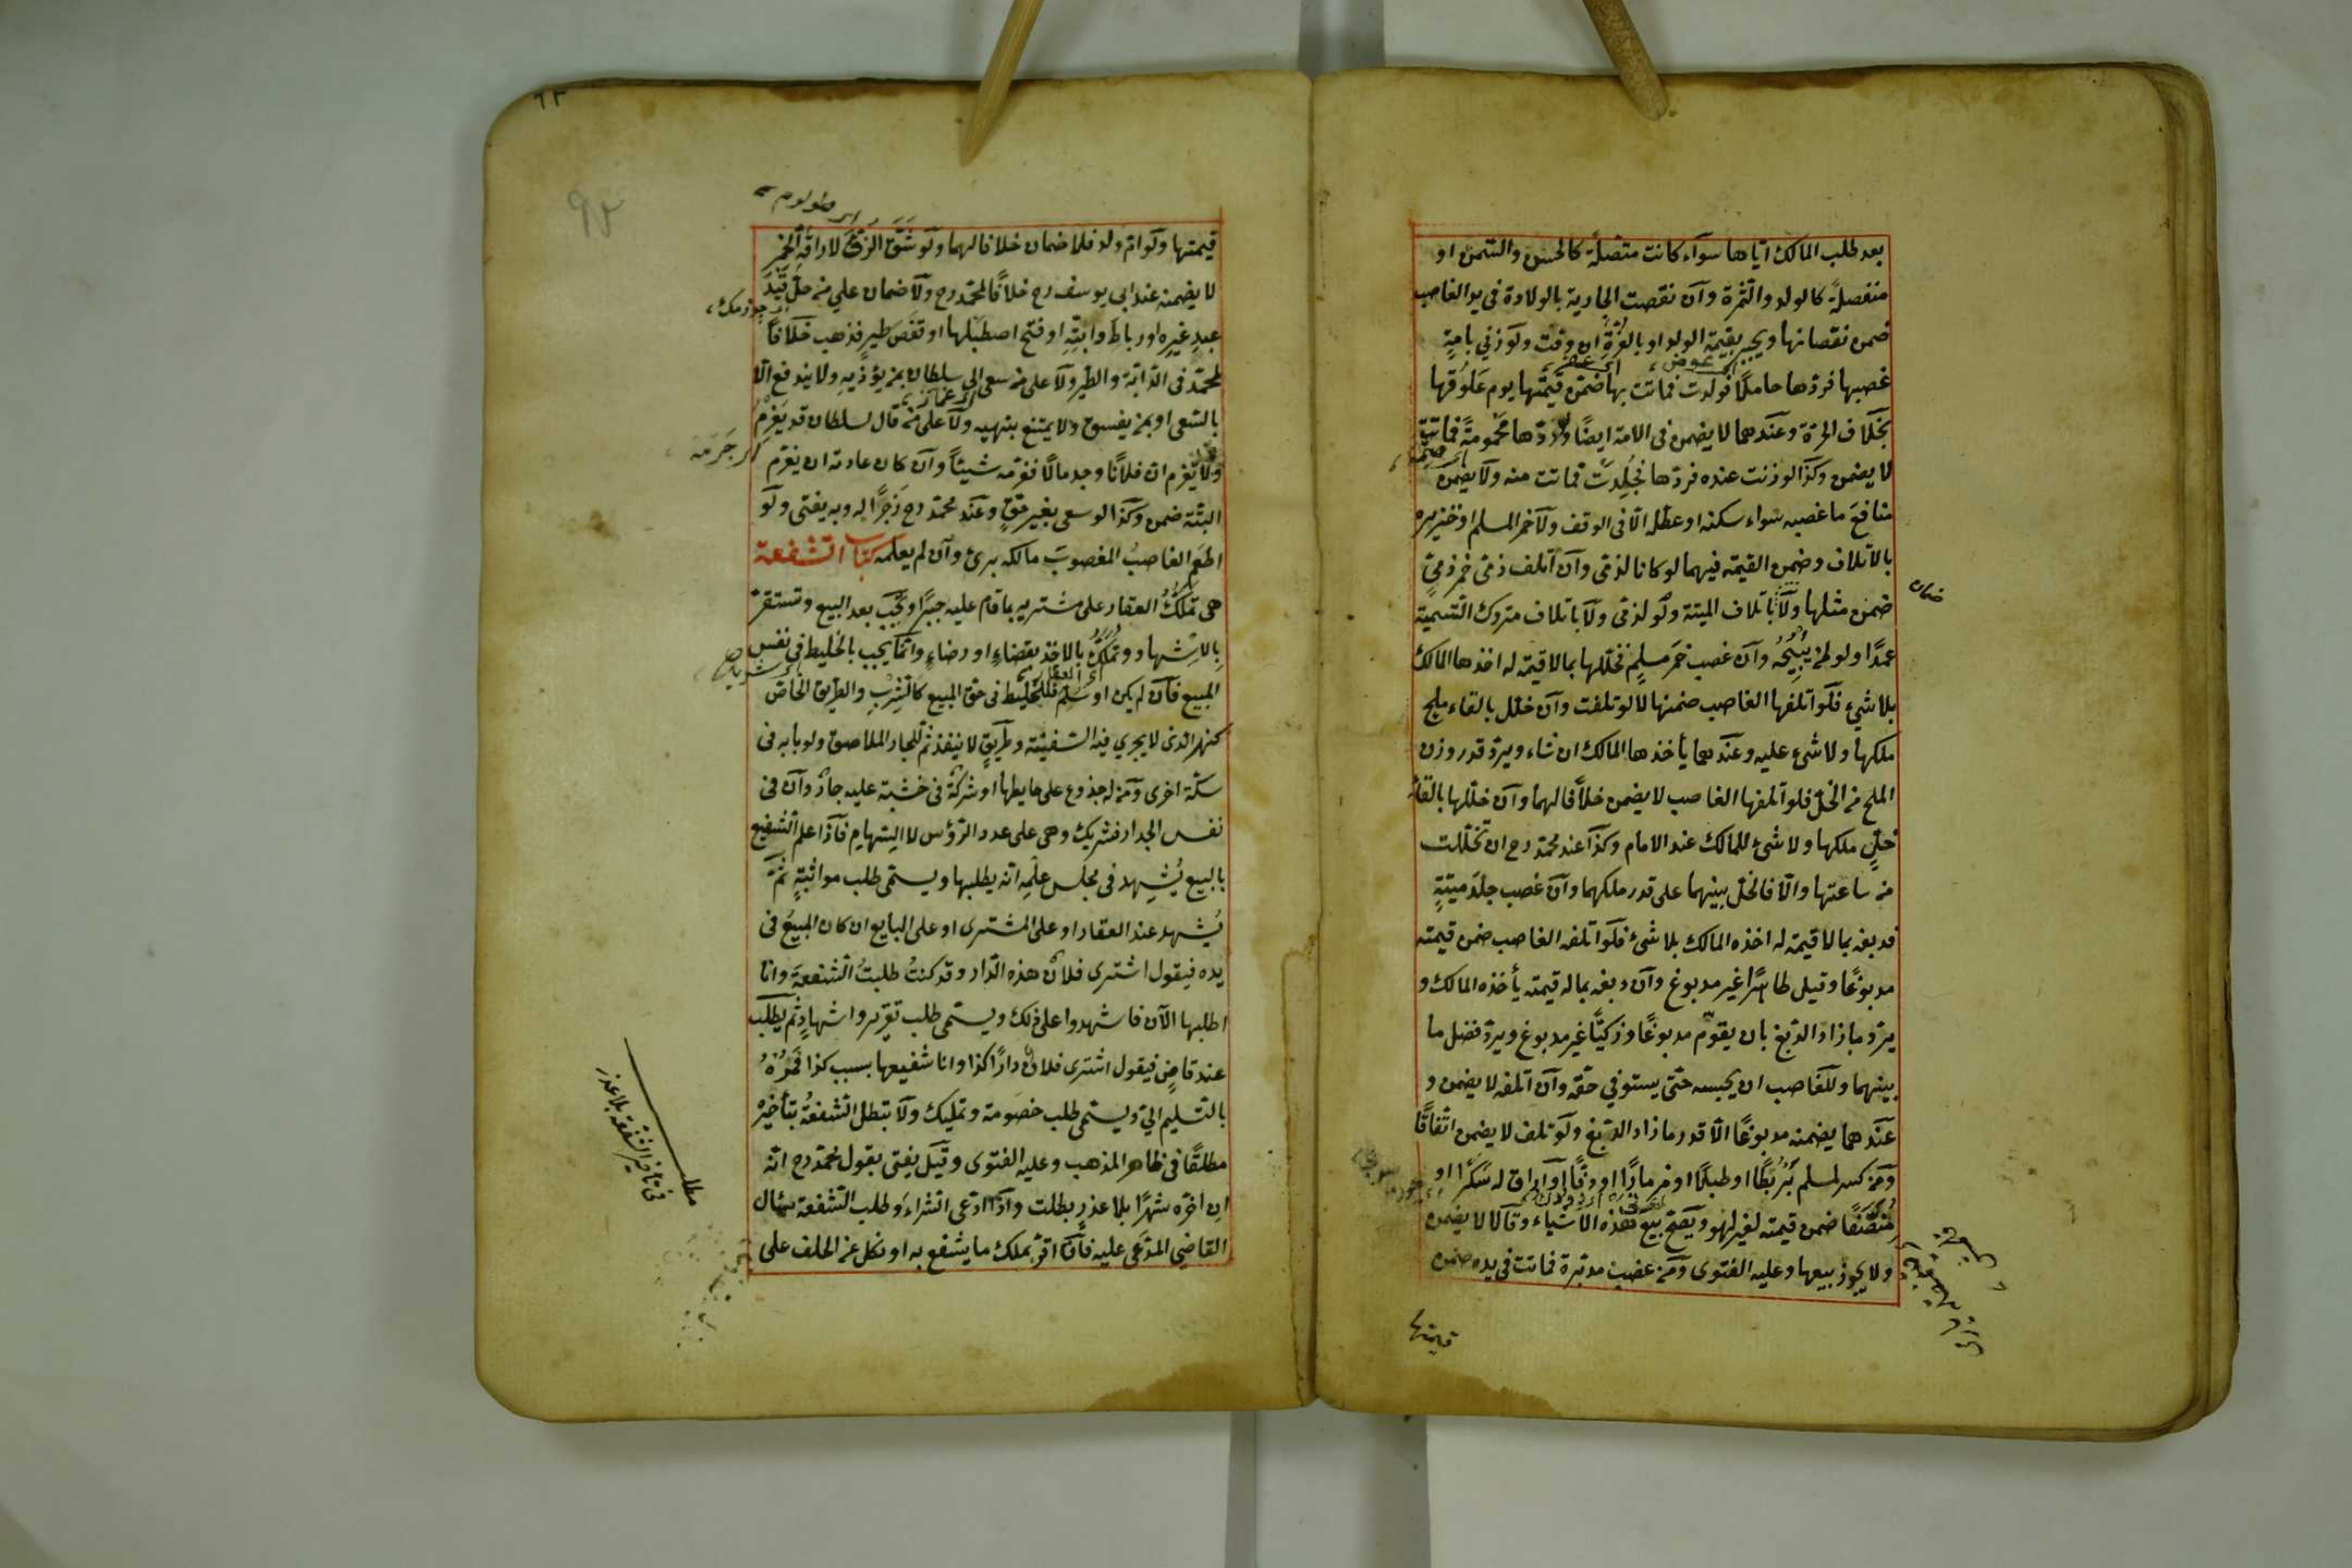 بعد طلب المالك اياها سواء كانت متصلة كالحسن والسمن او
منفصلة كالولد والثمرة وان نقصت الجارية بالولادة في يد الغاصب
ضمن نقصانها ويجبر بقيمة الولد او بالغرة ان وقت ولو زنى بامة
غصبها فردها حاملا فولدت فماتت بها ضمن قيمتها يوم علوقها
بخلاف الحرة وعندهما لا يضمن فى الامة ايضا ولو ردها محمومة فماتت
لا يضمن وكذا لو زنت عنده فردها فجلدت فماتت منه ولا يضمن
منافع ما غصبه سواء سكنه او عطله الا فى الوقف ولا خمر المسلم او خنزيره
بالاتلاف وضمن القيمة فيهما لو كانا لذمى وان اتلف ذمى خمر ذمى
ضمن مثلها ولا باتلاف الميتة ولو لذمى ولا باتلاف متروك التسمية
عمدا ولو لمن يبيحه وان غصب خمر مسلم فخللها بما لا قيمة له اخذها المالك
بلا شيء فلو اتلفها الغاصب ضمنها لا لو تلفت وان خلل بالقاء ملح
ملكها ولا شيء عليه وعندهما يأخذها المالك ان شاء ويرد قدر وزن
الملح من الخل فلو اتلفها الغاصب لا يضمن خلافا لهما وان خللها بالقاء
خل ملكها ولا شيء للمالك عند الامام وكذا عند محمد رح ان تخللت
من ساعتها والا فالخل بينهما على قدر ملكهما وان غصب جلد ميتة
فدبغه بما لا قيمة له اخذه المالك بلا شيء فلو اتلفه الغاصب ضمن قيمته
مدبوغا وقيل طاهرا غير مدبوغ وان دبغه بما له قيمة يأخذه المالك و
يرد ما زاد الدبغ بان يقوم مدبوغا وزكيا غير مدبوغ ويرد فضل ما
بينهما وللغاصب ان يحبسه حتى يستوفي حقه وان اتلفه لا يضمن و
عندهما يضمنه مدبوغا الا قدر ما زاد الدبغ ولو تلف لا يضمن اتفاقا
ومن كسر لمسلم بربطا او طبلا او مزمارا او دفا او اراق له سكرا او
منصفا ضمن قيمته لغير لهو ويصح بيع هذه الاشياء وقالا لا يضمن
ولا يجوز بيعها وعليه الفتوى ومن غصب مدبرة فماتت في يده ضمن
قيمتها
ضمان
٩٢
قيمتها ولو ام ولد فلا ضمان خلافا لهما ولو شق الزق لاراقة الخمر
لا يضمنه عند ابي يوسف رح خلافا لمحمد رح ولا ضمان على من حل قيد
عبد غيره او رباط دابته او فتح اصطبلها او قفص طير فذهب خلافا
لمحمد فى الدابة والطير ولا على من سعى الى سلطان بمن يؤذيه ولا يندفع الا
بالسعى او بمن يفسق ولا يمتنع بنهيه ولا على من قال لسلطان قد يغرم
ولا يغرم ان فلانا وجد مالا فغرمه شيئا وان كان عادته ان يغرم
البتة ضمن وكذا لو سعى بغير حق وعند محمد رح زجرا له وبه يفتى ولو
اطعم الغاصب المغصوب مالكه برئ وان لم يعلمه كتاب الشفعة
هى تملك العقار على مشتريه بما قام عليه جبرا وتجب بعد البيع وتستقر
بالاشهاد وتملك بالاخذ بقضاء او رضاء وانما يجب بالخليط في نفس
المبيع فان لم يكن او سلم فللخليط فى حق المبيع كالشرب والطريق الخاص
كنهر الذى لا يجري فيه السفينة وطريق لا ينفذ ثم للجار الملاصق ولو بابه فى
سكة اخرى ومن له جذوع على حايطها او شركة فى خشبة عليه جار وان فى
نفس الجدار فشريك وهى على عدد الرؤس لا السهام فاذا علم الشفيع
بالبيع يشهد فى مجلس علمه انه يطلبها ويسمى طلب مواثبة ثم
يشهد عند العقار او على المشترى او على البايع ان كان المبيع فى
يده فيقول اشترى فلان هذه الدار وقد كنت طلبت الشفعة وانا
اطلبها الآن فاشهدوا على ذلك ويسمى طلب تقرير واشهاد ثم يطلب
عند قاض فيقول اشترى فلان دارا كذا وانا شفيعها بسبب كذا فمره
بالتسليم الي ويسمى طلب خصومة وتمليك ولا تبطل الشفعة بتأخيره
مطلقا فى ظاهر المذهب وعليه الفتوى وقيل يفتى بقول محمد رح انه
ان اخره شهرا بلا عذر بطلت واذا ادعى الشراء وطلب الشفعة سئال
القاضي المدعى عليه فاذا اقر بملك ما يشفع به او نكل عن الحلف على
مطلب
فى تأخير الشفعة بلا عذر